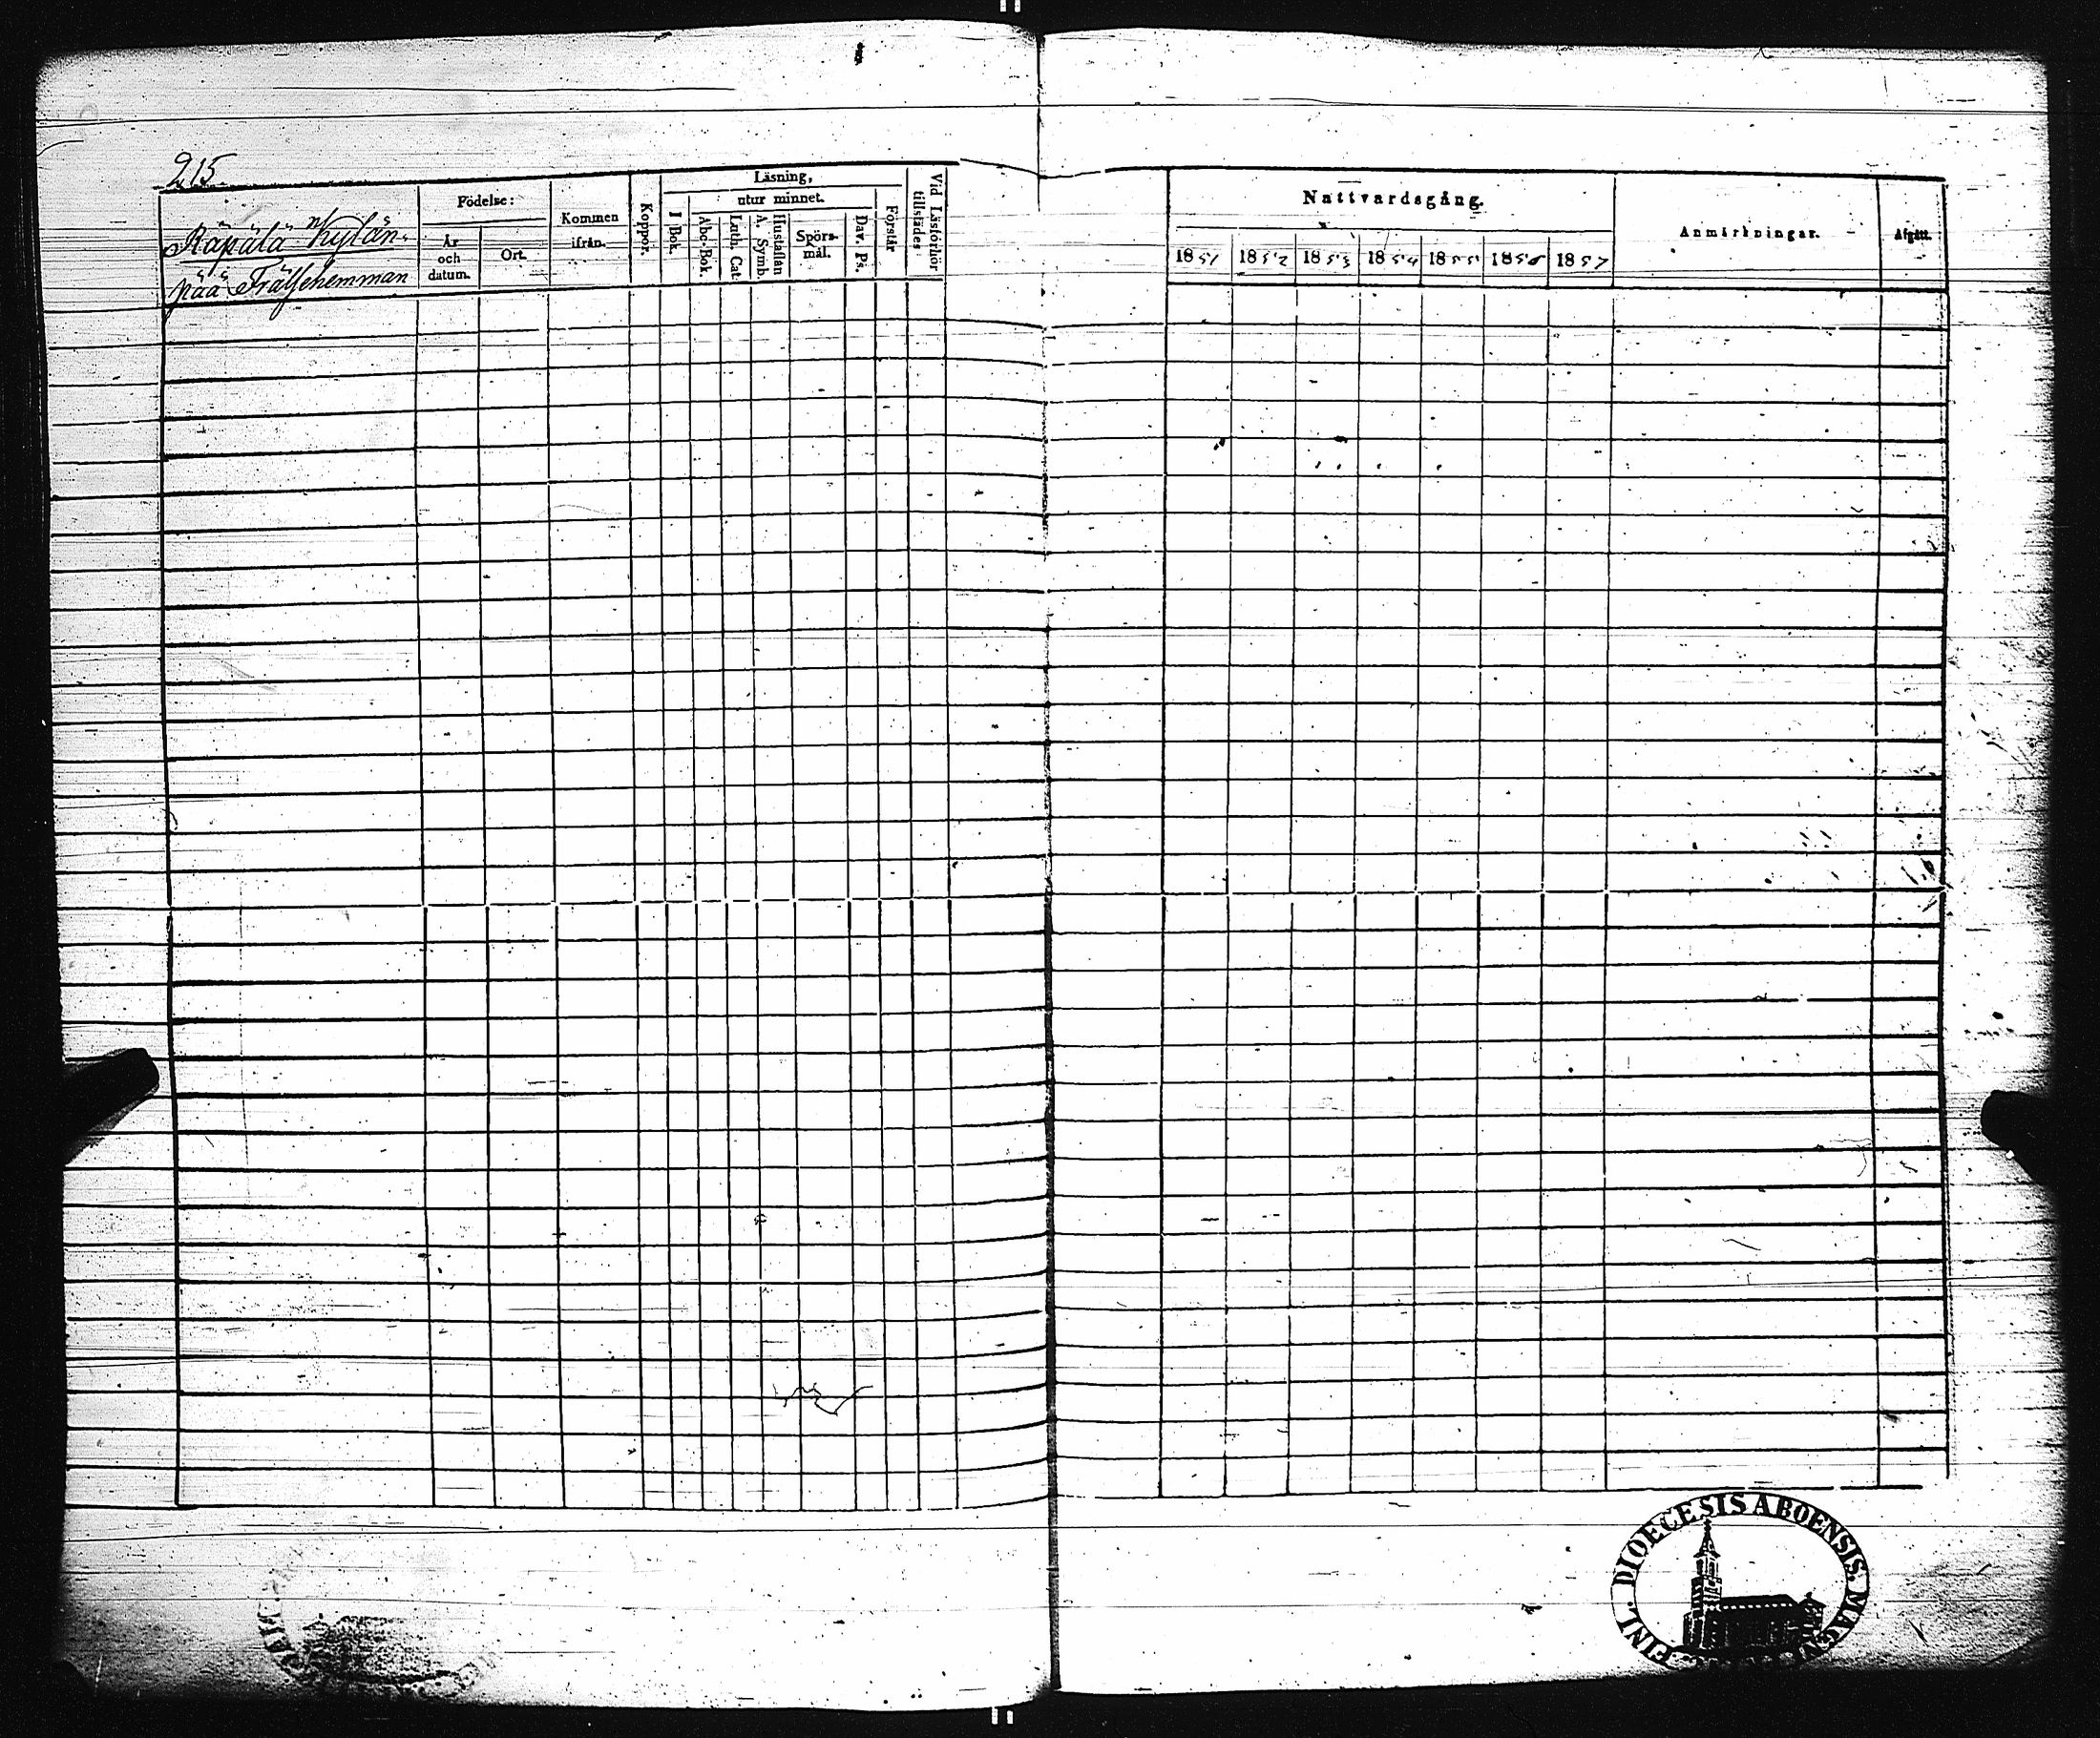 215
Räpälä Kylän-
pää Frälsehemman
Födelse:
År
och
datum.
Ort.
Kommen
ifrån.
Koppor.
Läsning,
I Bok.
utur minnet.
Abc-Bok.
Luth. Cat.
Hustaflan
A. Symb.
Spörs-
mål.
Dav. Ps.
Förstår
Vid Läsförhör
tillstädes:
Nattvardsgång.
1851 1852 1853 1854 1855 1856 1857
Anmärkningar.
Afgått.
FINL. DIOECESIS ABOENSIS. MAGN